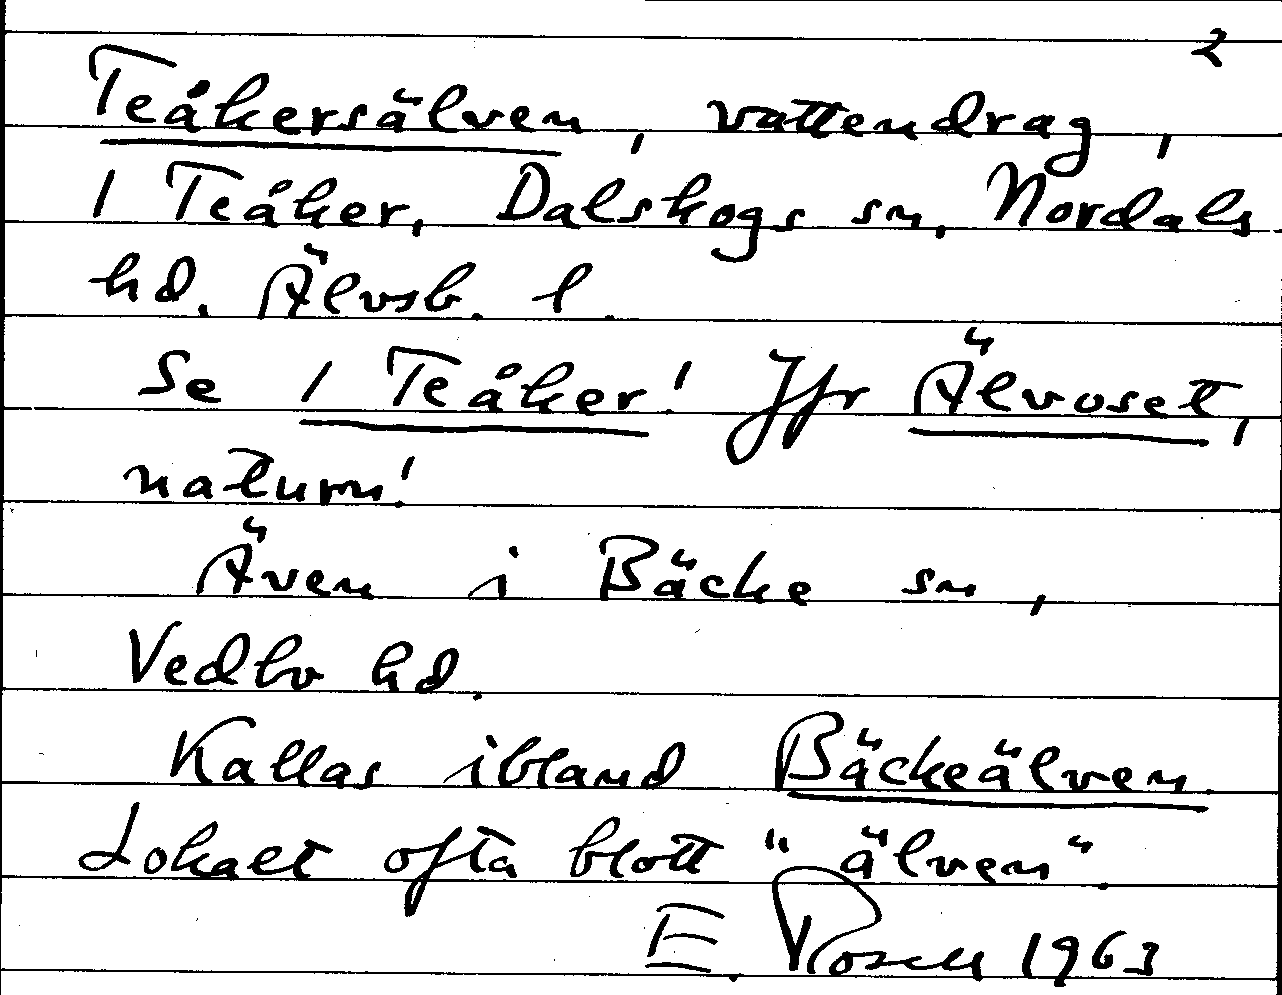 2
Teåkersälven, vattendrag,
1 Teåker, Dalskogs sn, Nordals
hd. Älvsb. l.
Se 1 Teåker! Jfr Älvoset,
naturn!
Även i Bäcke sn,
Vedbo hd.
Kallas ibland Bäckeälven.
Lokalt ofta blott "älven".
E. Rosell 1963